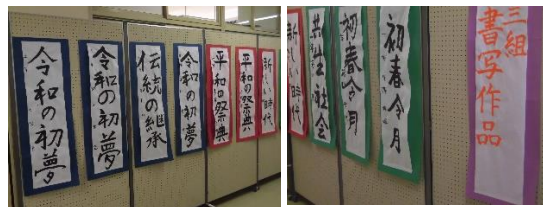 令和の初夢
令和の初夢
伝統の継承
令和の初夢
平和の祭典
平和の祭典
新しい時代
新しい時代
共生社会
初春令月
初春令月
三組
書写作品